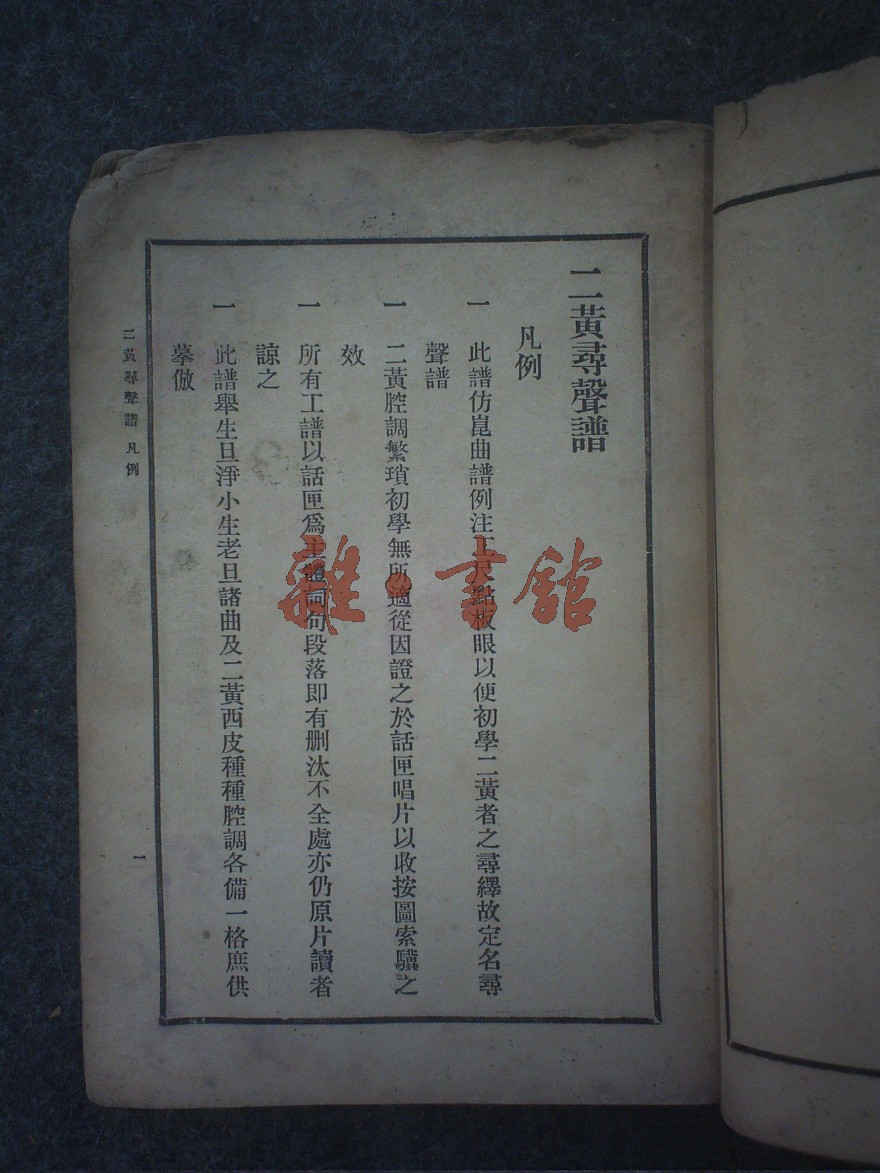 二黃尋聲譜
凡例
一 此譜仿崑曲譜例注工尺點板眼以便初學二黃者之尋繹故定名尋
聲譜
一 二黃腔調繁瑣初學無所適從因證之於話匣唱片以收按圖索驥之
效
一 所有工譜以話匣爲主體詞句段落即有删汰不全處亦仍原片讀者
諒之
一 此譜舉生旦淨小生老旦諸曲及二黃西皮種種腔調各備一格庶供
摹倣
二黃尋聲譜 凡例
一
雜·書館